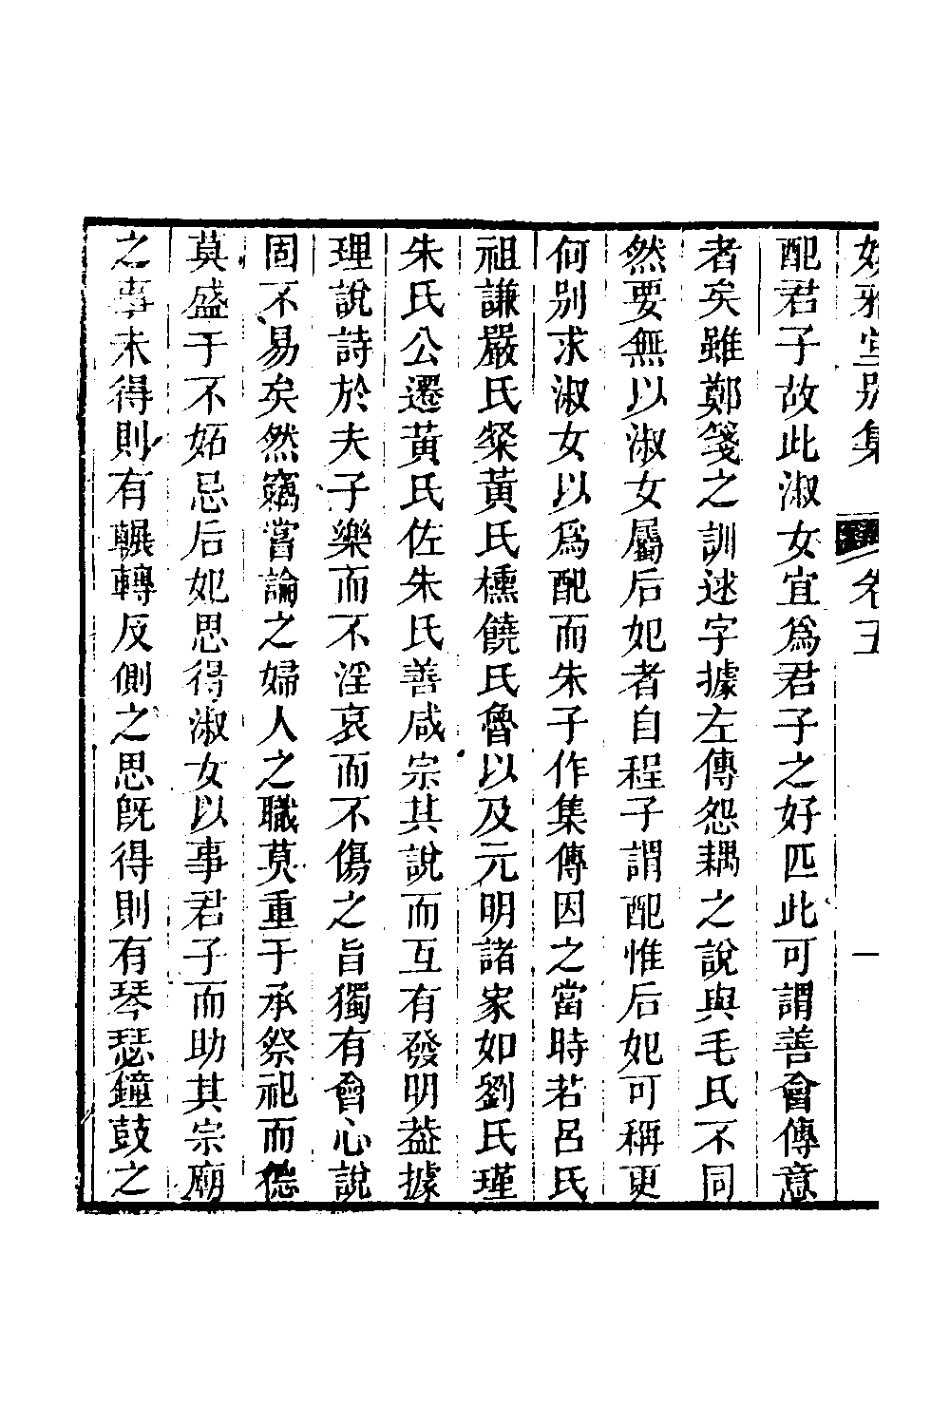 好雅堂別集 卷五 一
配君子故此淑女宜爲君子之好匹此可謂善會傳意
者矣雖鄭箋之訓逑字據左傳怨耦之說與毛氏不同
然要無以淑女屬后妃者自程子謂配惟后妃可稱更
何別求淑女以爲配而朱子作集傳因之當時若呂氏
祖謙嚴氏粲黃氏櫄饒氏魯以及元明諸家如劉氏瑾
朱氏公遷黃氏佐朱氏善咸宗其說而互有發明葢據
理說詩於夫子樂而不淫哀而不傷之旨獨有會心說
固不易矣然竊嘗論之婦人之職莫重于承祭祀而德
莫盛于不妬忌后妃思得淑女以事君子而助其宗廟
之事未得則有輾轉反側之思旣得則有琴瑟鐘鼓之